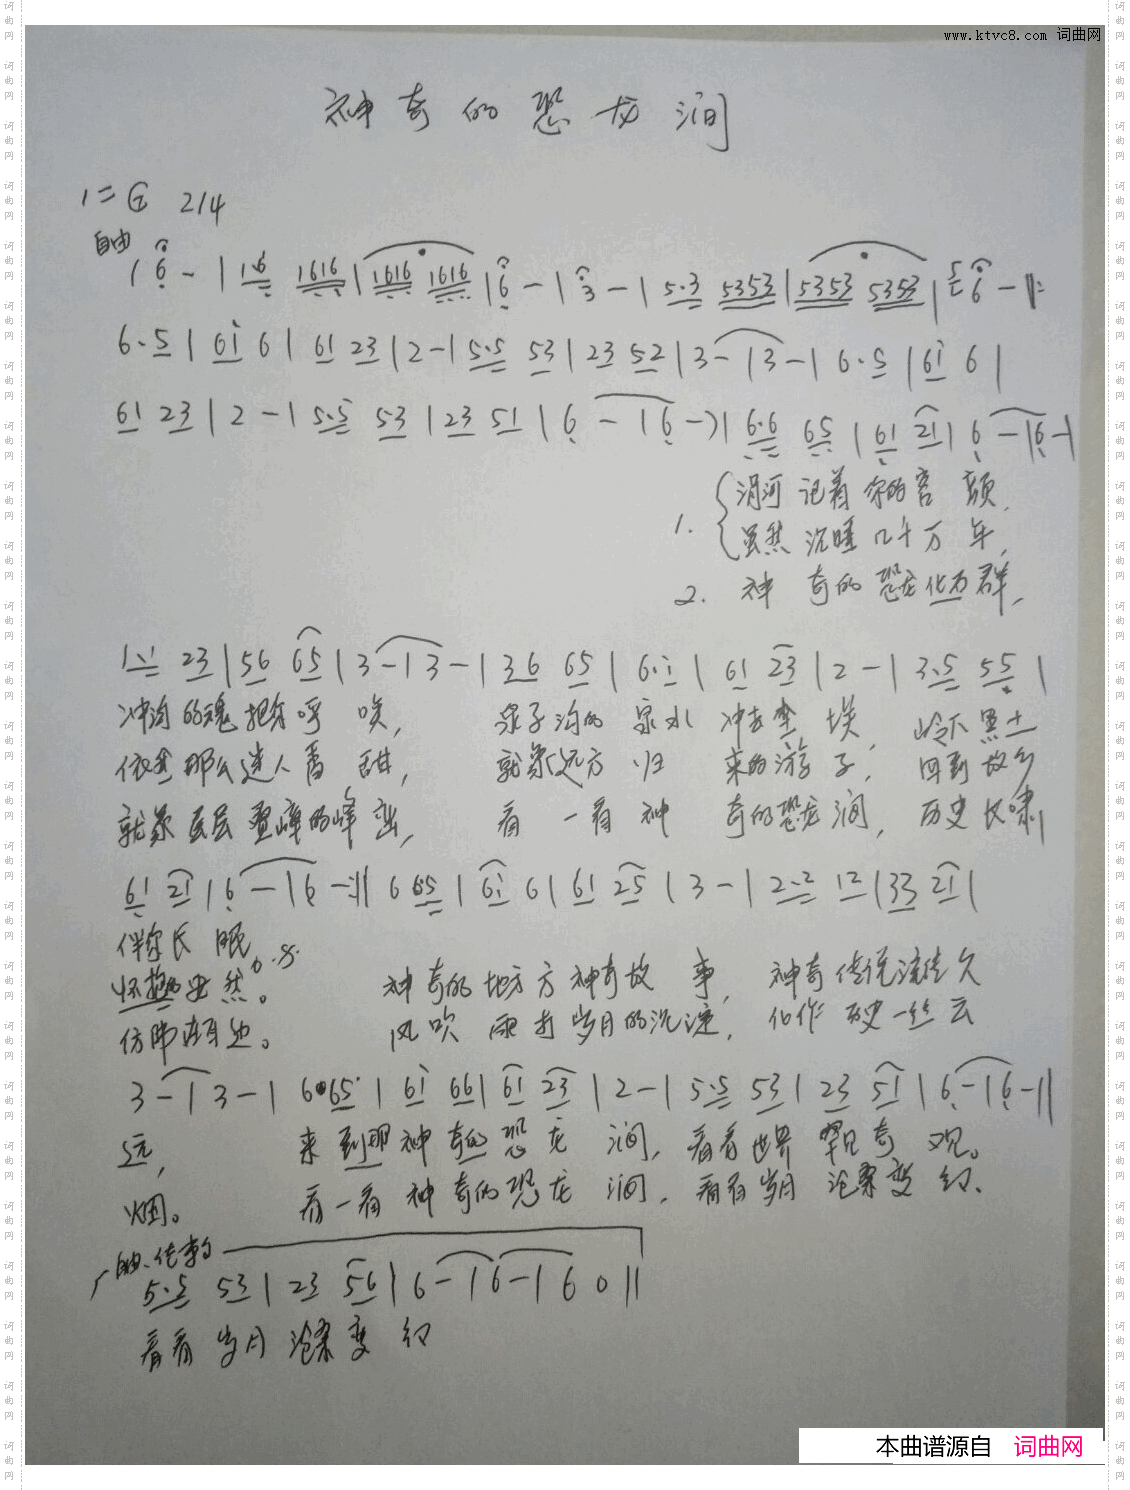 www.ktvc8.com 词曲网
神奇的恐龙涧
1=G 2/4
自由
1 6 - | 1·6 1616 | 1616 1616 | 6 - | 3 - | 5·3 5353 | 5353 5353 | 5 6 - ||:
6·5 | 61 6 | 61 23 | 2 - | 5·5 53 | 23 52 | 3 - | 3 - | 6·5 | 61 6 |
61 23 | 2 - | 5·5 53 | 23 51 | 6 - | 6 -) | 6·6 65 | 61 21 | 6 - | 6 - |
1. 渭河记着你的容颜,
虽然沉睡几千万年,
2. 神奇的恐龙化石群,
1·1 23 | 56 65 | 3 - | 3 - | 36 65 | 6·1 | 61 23 | 2 - | 3·5 55 |
冲沟的魂把你呼唤, 泉子沟的泉水冲去尘埃, 岭下黑土
依然那么迷人香甜, 就象远方归来的游子, 回到故乡
就象层层叠嶂的峰峦, 看一看神奇的恐龙涧, 历史长啸
61 21 | 6 - | 6 - :|| 6 65 | 61 6 | 61 25 | 3 - | 2·2 12 | 33 21 |
伴你长眠。
怀抱安然。 神奇的地方神奇故事, 神奇传说流传久
仿佛耳边。 风吹雨打岁月的沉淀, 化作历史一丝云
3 - | 3 - | 6 65 | 61 66 | 61 23 | 2 - | 5·5 53 | 23 51 | 6 - | 6 - ||
远, 来到那神奇的恐龙涧, 看看世界罕见奇观。
烟。 看一看神奇的恐龙涧, 看看岁月沧桑变幻、
5·5 53 | 23 56 | 6 - | 6 - | 6 0 ||
看看岁月沧桑变幻
本曲谱源自 词曲网